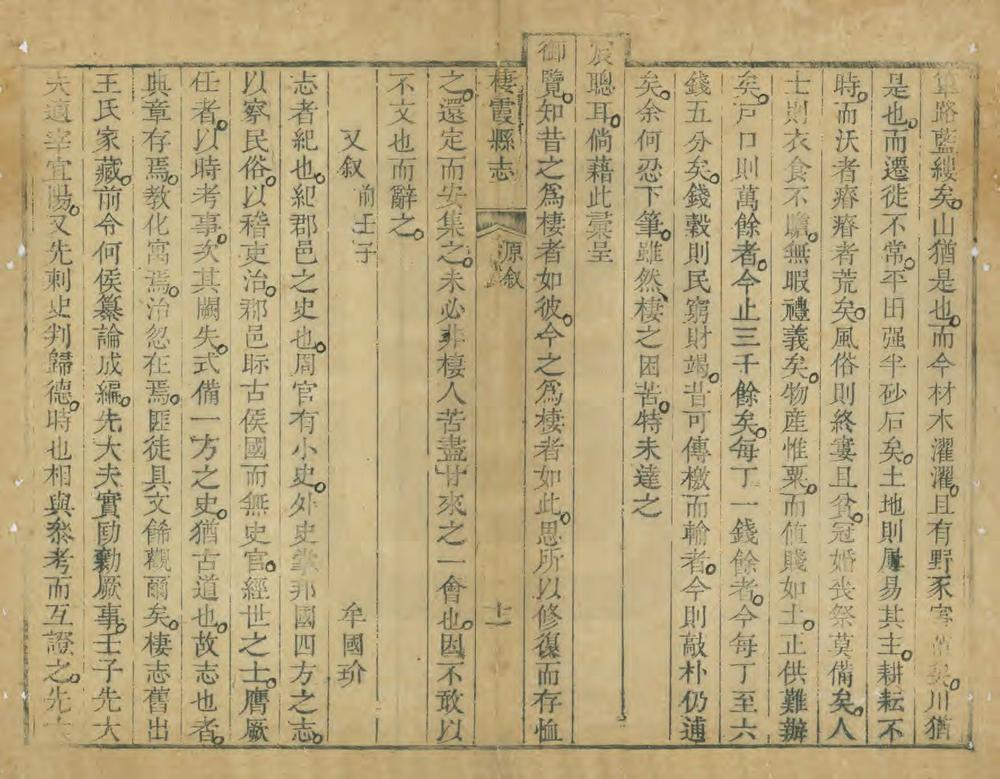 篳路藍縷矣山猶是也而今材木濯濯且有野豕害苗矣川猶
是也而遷徙不常平田强半砂石矣土地則屢易其主耕耘不
時而沃者瘠瘠者荒矣風俗則終窶且貧冠婚丧祭莫備矣人
士則衣食不贍無暇禮義矣物産惟粟而值賤如土正供難辦
矣戸口則萬餘者今止三千餘矣每丁一錢餘者今每丁至六
錢五分矣錢榖則民窮財竭昔可傳檄而輸者今則敲朴仍逋
矣余何忍下筆雖然棲之困苦特未達之
宸聰耳倘藉此藁呈
御覽知昔之爲棲者如彼今之爲棲者如此思所以修復而存恤
棲霞縣志 原叙 十一
之還定而安集之未必非棲人苦盡甘來之一會也因不敢以
不文也而辭之
又叙 前壬子 牟國玠
志者紀也紀郡邑之史也周官有小史外史掌邦國四方之志
以察民俗以稽吏治郡邑眎古侯國而無史官經世之士膺厥
任者以時考事次其闕失式備一方之史猶古道也故志也者
典章存焉教化寓焉治忽在焉匪徒具文餙觀爾矣棲志舊出
王氏家藏前令何侯纂論成編先大夫實勷厥事壬子先大
夫適宰宜陽又先刺史判歸德時也相與叅考而互證之先大